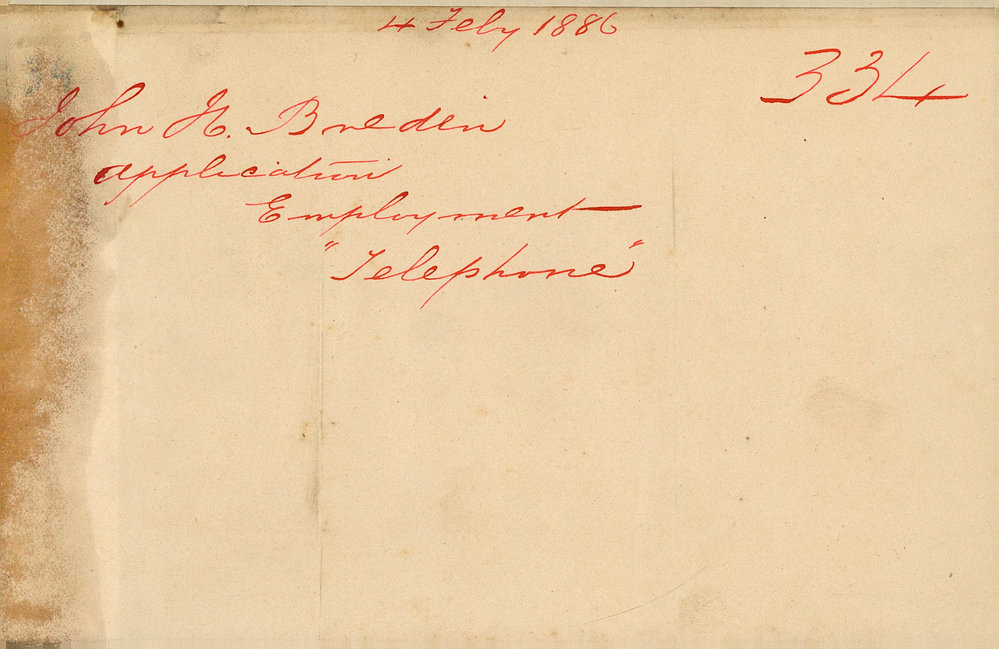 4 Feby 1886
334
John H. Breden
application
Employment
"Telephone"